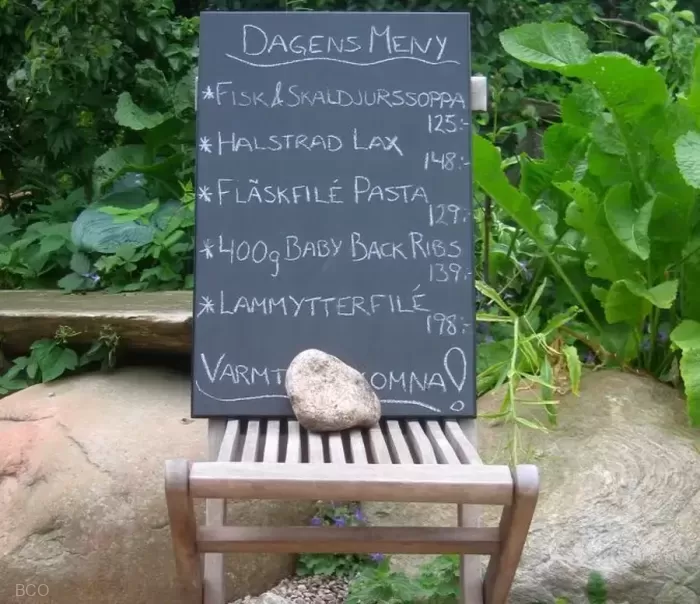 DAGENS MENY
*FISK & SKALDJURSSOPPA
125:-
*HALSTRAD LAX
148:-
*FLÄSKFILÉ PASTA
129:-
*400g BABY BACK RIBS
139:-
*LAMMYTTERFILÉ
198:-
VARMT OMNA!
BCO